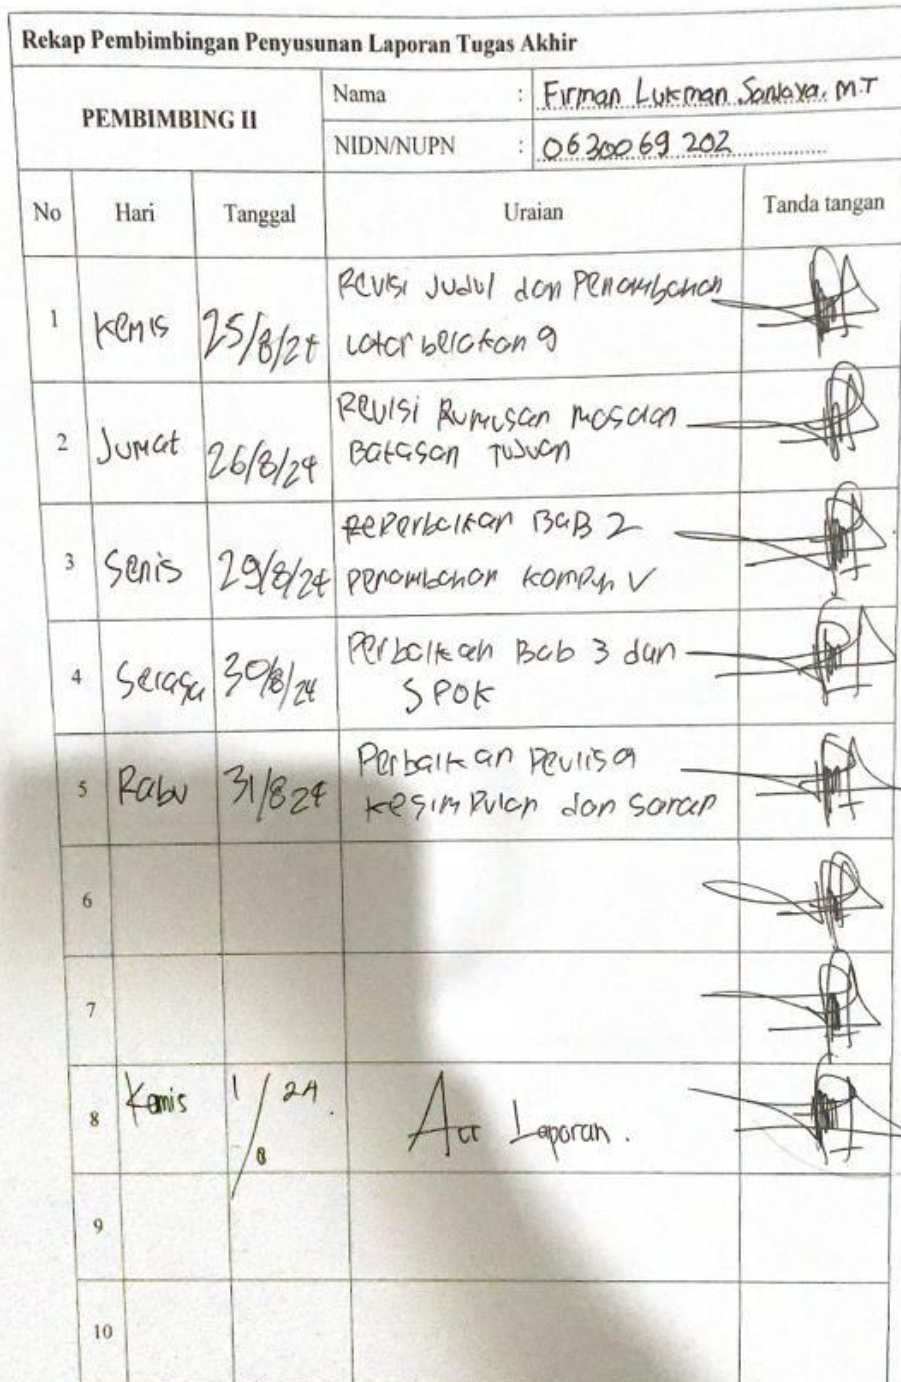 Rekap Pembimbingan Penyusunan Laporan Tugas Akhir
PEMBIMBING II
Nama : Firman Lukman Sanjaya. M.T
NIDN/NUPN : 0630069202
No Hari Tanggal Uraian Tanda tangan
1 Kemis 25/8/24 Revisi Judul dan Penambahan
Latar belakang
2 Jumat 26/8/24 Revisi Rumusan masalah
Batasan Tujuan
3 Senis 29/8/24 Perbaikan BaB 2
penambahan
4 30/8/24 Perbaikan Bab 3 dan
SPOK
5 Rabu 31/824 Perbaikan
kesimpulan dan saran
6
7
8 Kamis 1/8 24. Acc Laporan.
9
10